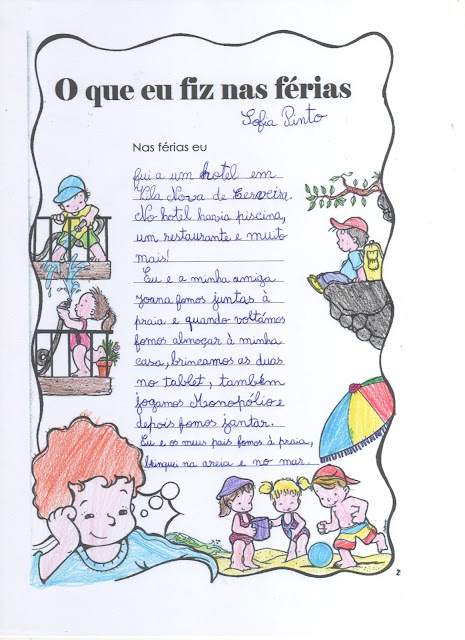 O que eu fiz nas férias
Sofia Pinto
Nas férias eu
fui a um hotel em
Vila Nova de Cerveira.
No hotel havia piscina,
um restaurante e muito
mais!
Eu e a minha amiga
Joana fomos juntas à
praia e quando voltámos
fomos almoçar à minha
casa, brincamos as duas
no tablet, também
jogamos Monopólio e
depois fomos jantar.
Eu e os meus pais fomos à praia,
brinquei na areia e no mar.
2